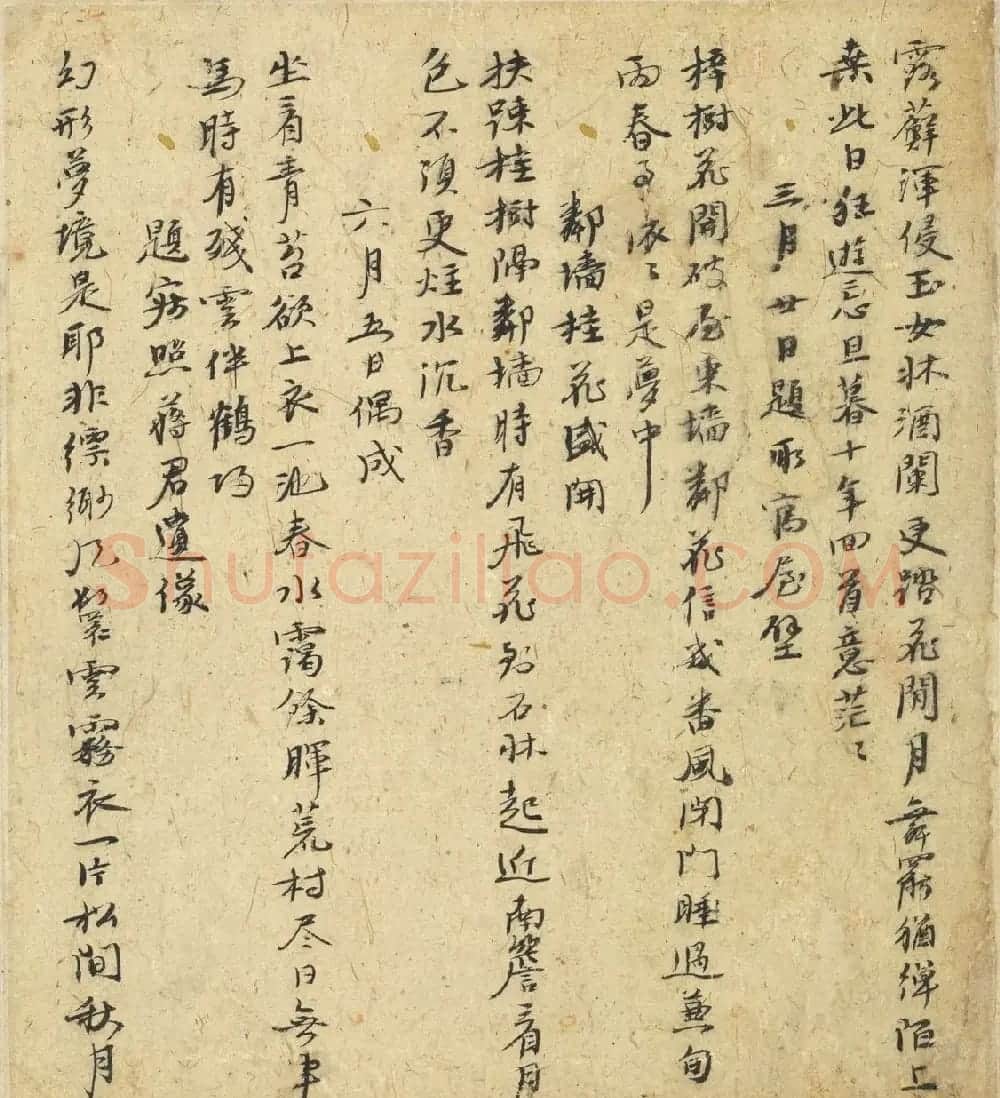 露蘚渾侵玉女牀酒闌更踏花間月舞罷猶彈陌上
桒此日狂遊忘旦暮十年回首意茫〻
三月廿日題所寓屋壁
梓樹花開破屋東墻鄰花信幾番風閉門睡過兼旬
雨春事依〻是夢中
鄰墻桂花盛開
扶疎桂樹隔鄰墻時有飛花到石牀起近南簷看月
色不須更炷水沉香
六月五日偶成
坐看青苔欲上衣一池春水靄餘暉荒村尽日無車
馬時有殘雲伴鶴歸
題寫照蔣君遺像
幻形夢境是耶非縹緲風鬟雲霧衣一片松間秋月
Shufaziliao.COM